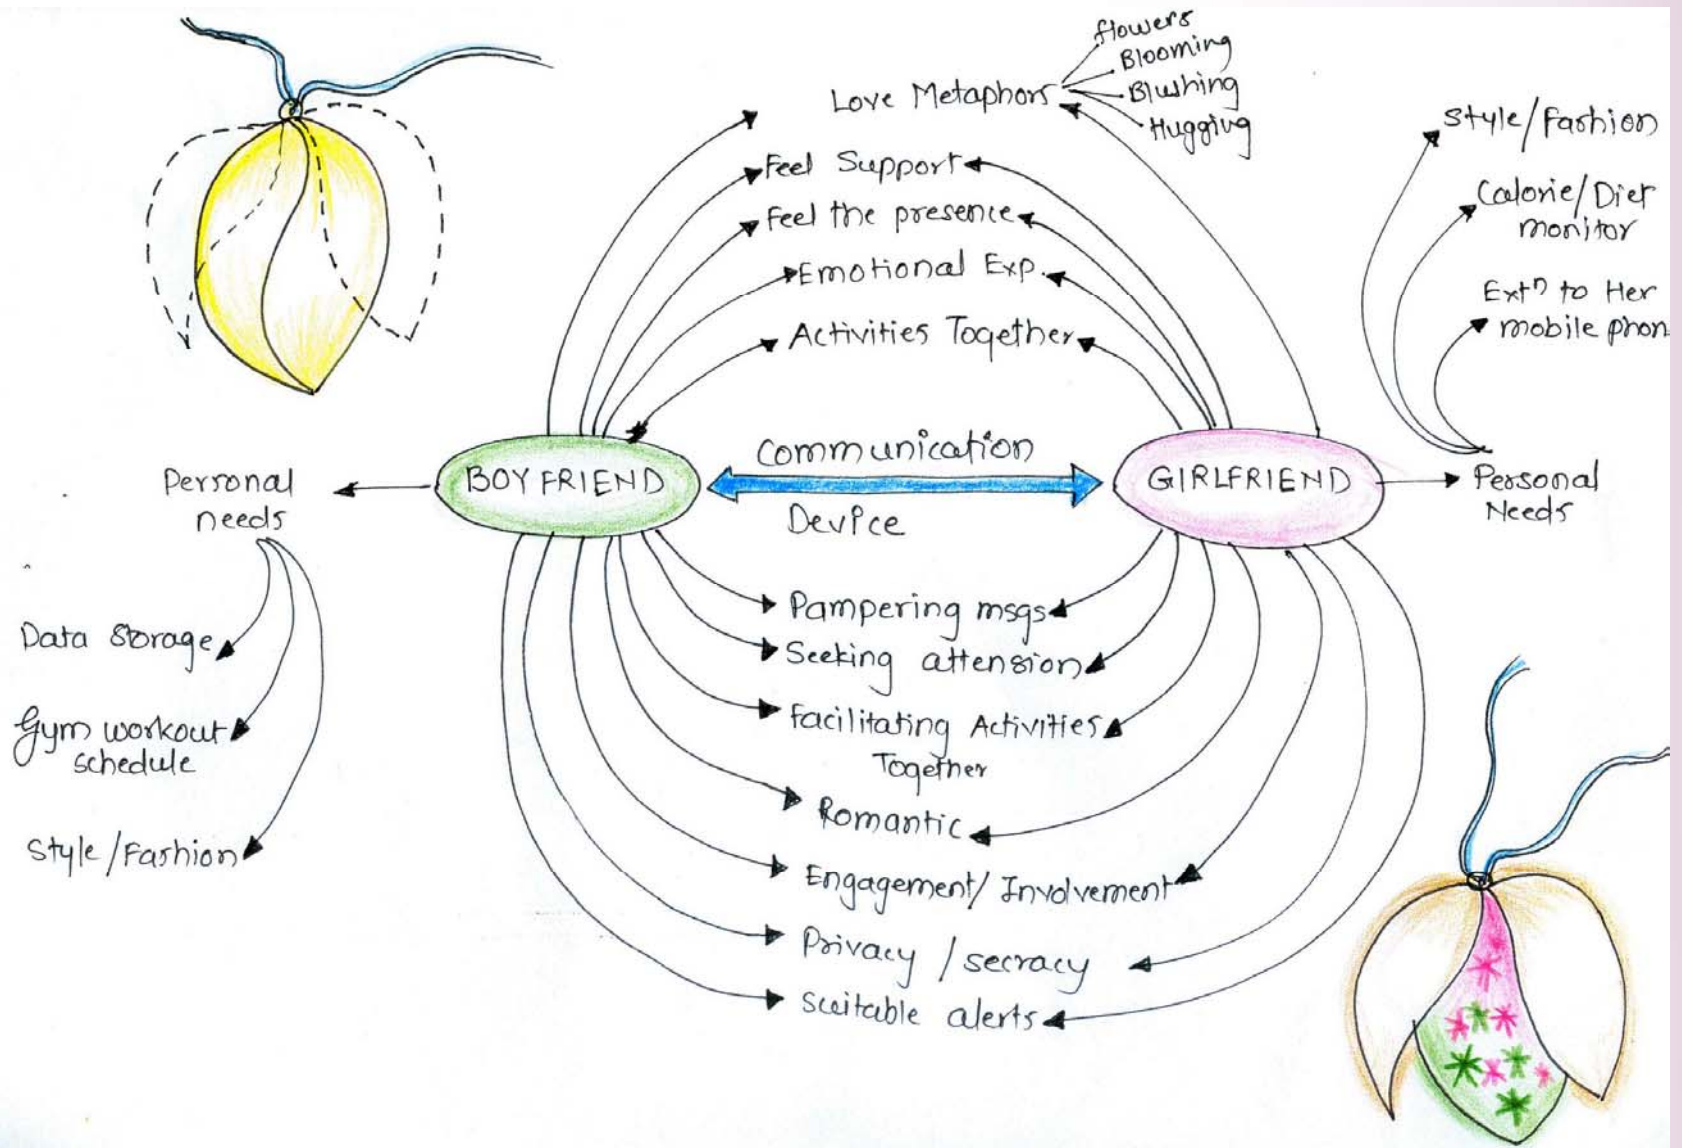 flowers
Blooming
Blushing
Hugging
Love Metaphors
Feel Support
Feel the presence
Emotional Exp.
Activities Together
Style/Fashion
Calorie/Diet
monitor
Extⁿ to Her
mobile phon
BOYFRIEND
Communication
Device
GIRLFRIEND
Personal
needs
Personal
Needs
Data Storage
Gym workout
schedule
Style/Fashion
Pampering msgs
Seeking attension
Facilitating Activities
Together
Romantic
Engagement/Involvement
Privacy/secracy
Suitable alerts